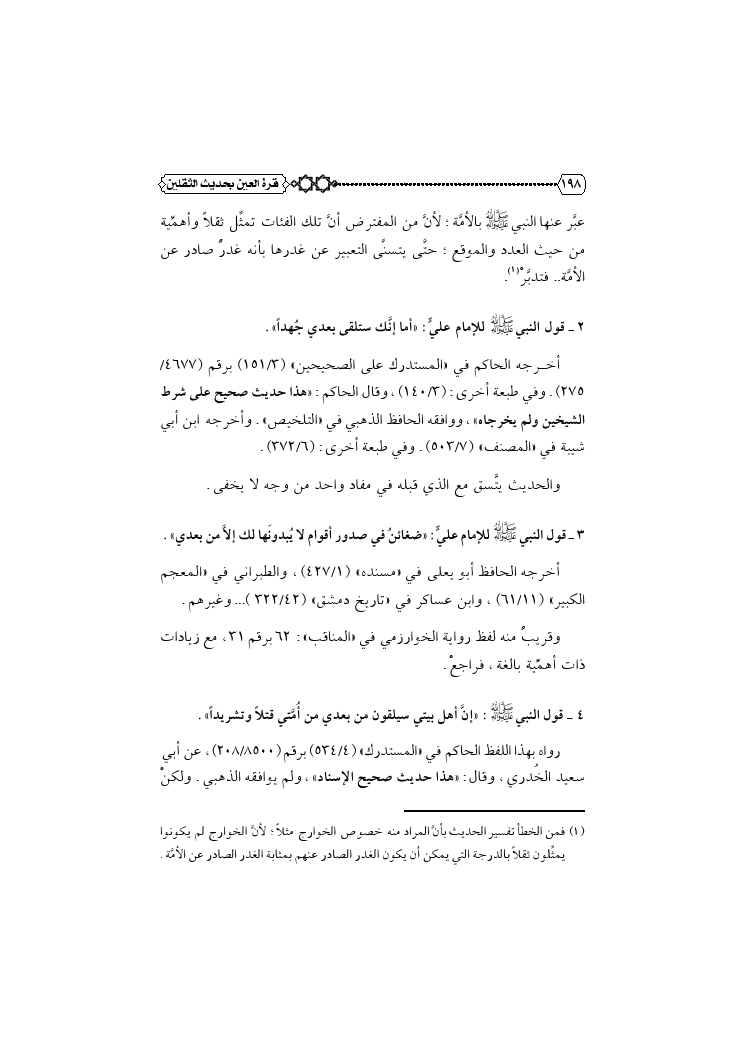 ١٩٨ قرة العين بحديث الثقلين
عبَّر عنها النبي ﷺ بالأمَّة ؛ لأنَّ من المفترض أنَّ تلك الفئات تمثِّل ثقلاً وأهمِّية
من حيث العدد والموقع ؛ حتَّى يتسنَّى التعبير عن غدرها بأنه غدرٌ صادر عن
الأمَّة.. فتدبَّرْ(١).
٢ ـ قول النبي ﷺ للإمام عليٍّ : «أما إنَّك ستلقى بعدي جُهداً» .
أخـرجه الحاكم في «المستدرك على الصحيحين» (١٥١/٣) برقم (٤٦٧٧/
٢٧٥) . وفي طبعة أخرى : (١٤٠/٣) ، وقال الحاكم : «هذا حديث صحيح على شرط
الشيخين ولم يخرجاه» ، ووافقه الحافظ الذهبي في «التلخيص» . وأخرجه ابن أبي
شيبة في «المصنف» (٥٠٣/٧) . وفي طبعة أخرى : (٣٧٢/٦) .
والحديث يتَّسق مع الذي قبله في مفاد واحد من وجه لا يخفى .
٣ ـ قول النبي ﷺ للإمام عليٍّ : «ضغائنُ في صدور أقوام لا يُبدونَها لك إلاَّ من بعدي» .
أخرجه الحافظ أبو يعلى في «مسنده» (٤٢٧/١) ، والطبراني في «المعجم
الكبير» (٦١/١١) ، وابن عساكر في «تاريخ دمشق» (٣٢٢/٤٢ )... وغيرهم .
وقريبٌ منه لفظ رواية الخوارزمي في «المناقب» : ٦٢ برقم ٣١ ، مع زيادات
ذات أهمِّية بالغة ، فراجعْ .
٤ ـ قول النبي ﷺ : «إنَّ أهل بيتي سيلقون من بعدي من أُمَّتي قتلاً وتشريداً» .
رواه بهذا اللفظ الحاكم في «المستدرك» (٥٣٤/٤) برقم (٢٠٨/٨٥٠٠) ، عن أبي
سعيد الخُدري ، وقال : «هذا حديث صحيح الإسناد» ، ولم يوافقه الذهبي . ولكنْ
(١) فمن الخطأ تفسير الحديث بأنَّ المراد منه خصوص الخوارج مثلاً ؛ لأنَّ الخوارج لم يكونوا
يمثِّلون ثقلاً بالدرجة التي يمكن أن يكون الغدر الصادر عنهم بمثابة الغدر الصادر عن الأمَّة .